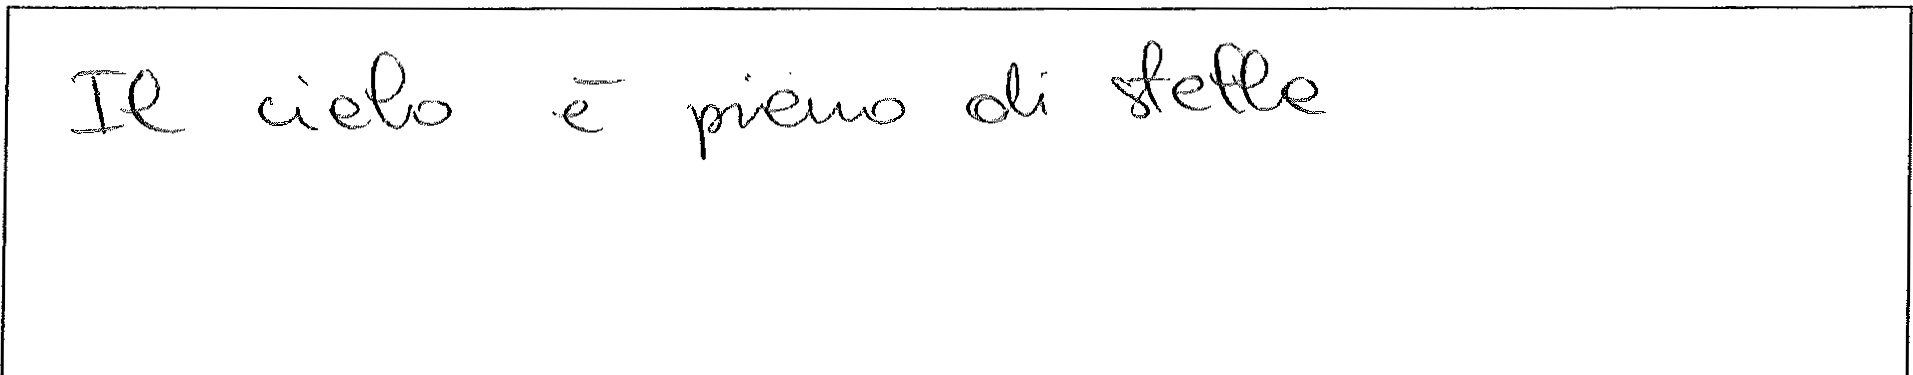 Il cielo è pieno di stelle